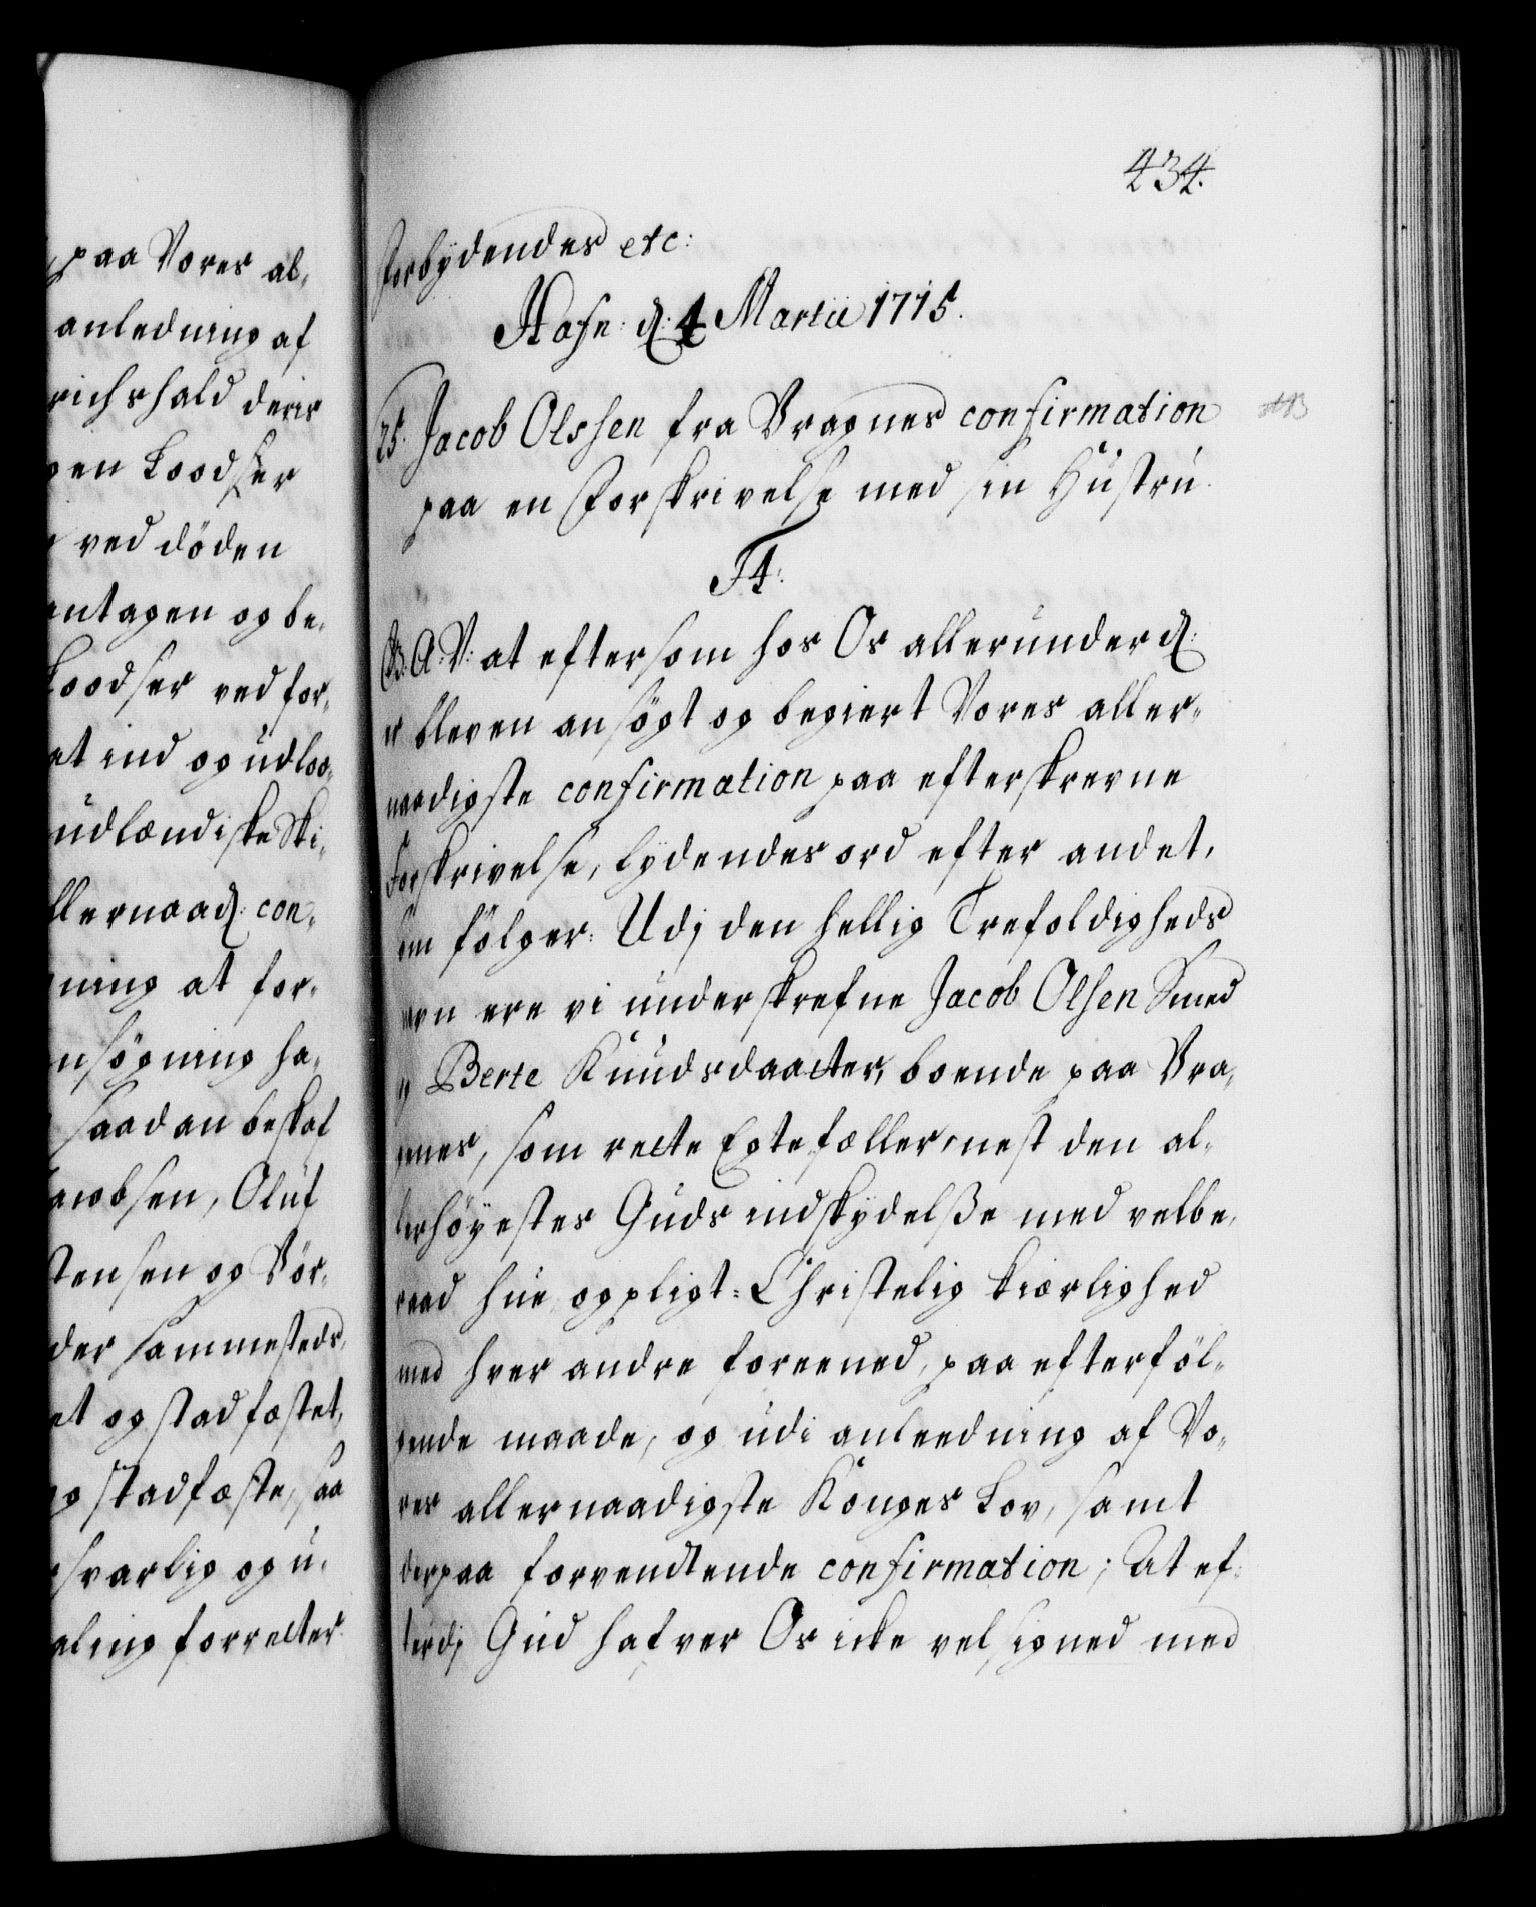 434.
paa Vores al-
anledning af
richshald deris
gen Loodser
ved döden
antagen og be-
Loodser ved for-
et ind og udloo-
udlændiske Ski-
llernaad: con-
ning at for-
nsögning ha-
saadan beskaf
acobsen, Oluf
tensen og Vör-
der sammesteds,
et og stadfæstet,
og stadfæste, saa
svarlig og u-
aling forretter
forbydendes etc:
Hafn: d: 4 Martii 1715.
25. Jacob Olssen fra Vragnes confirmation
paa en Forskrivelse med sin Hustru.
F4:
G: A: V: at eftersom hos Os allerunderd:
er bleven ansögt og begiert Vores aller-
naadigste confirmation paa efterskrevne
Forskrivelse, lydendes ord efter andet,
som fölger: Udj den hellig Trefoldigheds
nafn ere vi underskrefne Jacob Olsen Smed
og Berte Knudsdaatter, boende paa Vra-
genes, som rette Egtefæller, nest den al-
lerhöyestes Guds indskydelße med velbe-
raad hue, og pligt-Christelig kiærlighed
med hver andre foreened, paa efterföl-
gende maade, og udi anleedning af Vo-
res allernaadigste Konges Lov, samt
derpaa forvendtende confirmation; At ef-
terdj Gud hafver Os icke velsigned med